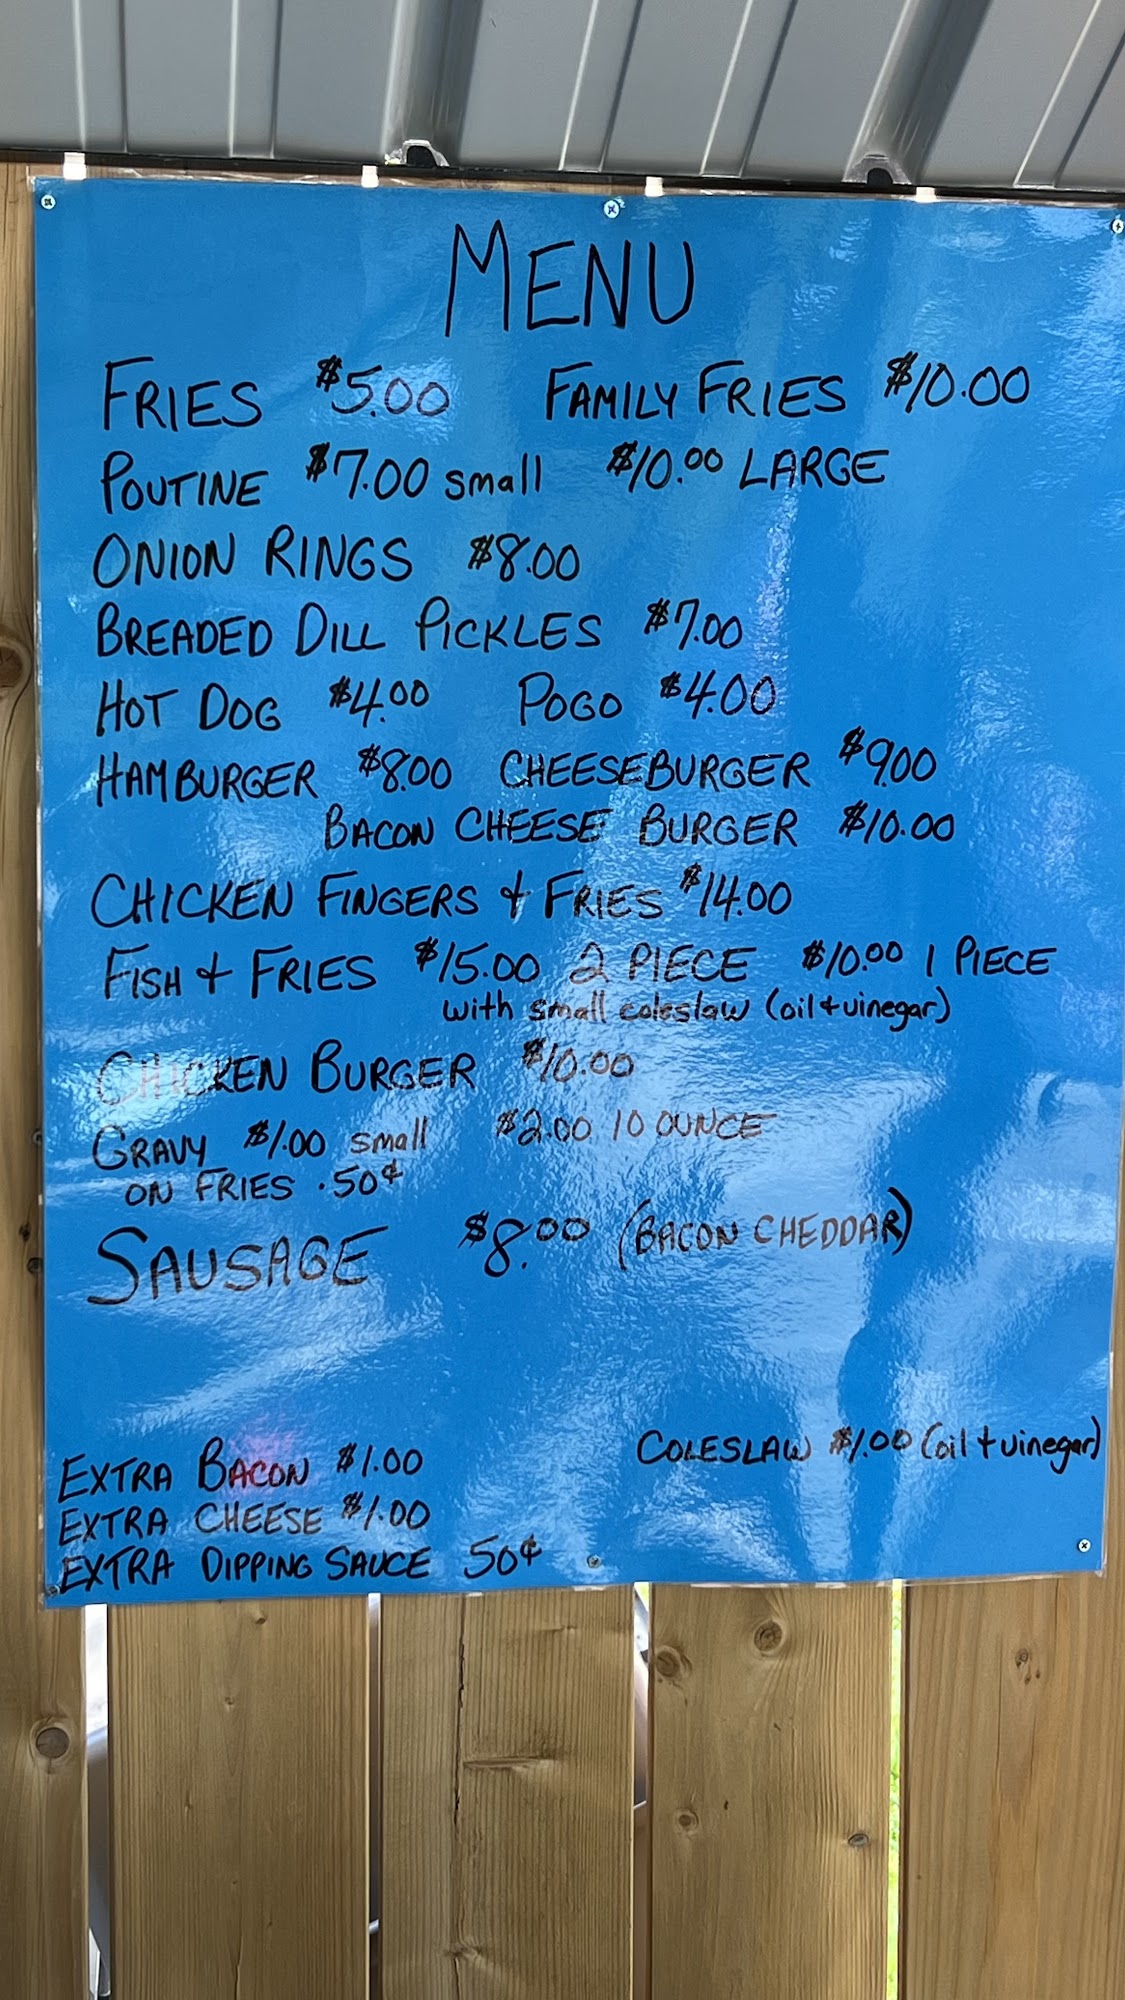 MENU
FRIES $5.00 FAMILY FRIES $10.00
POUTINE $7.00 small $10.00 LARGE
ONION RINGS $8.00
BREADED DILL PICKLES $7.00
HOT DOG $4.00 POGO $4.00
HAMBURGER $8.00 CHEESEBURGER $9.00
BACON CHEESE BURGER $10.00
CHICKEN FINGERS + FRIES $14.00
FISH + FRIES $15.00 2 PIECE $10.00 1 PIECE
with small coleslaw (oil + vinegar)
CHICKEN BURGER $10.00
GRAVY $1.00 small $2.00 10 OUNCE
ON FRIES .50¢
SAUSAGE $8.00 (BACON CHEDDAR)
COLESLAW $1.00 (oil + vinegar)
EXTRA BACON $1.00
EXTRA CHEESE $1.00
EXTRA DIPPING SAUCE 50¢